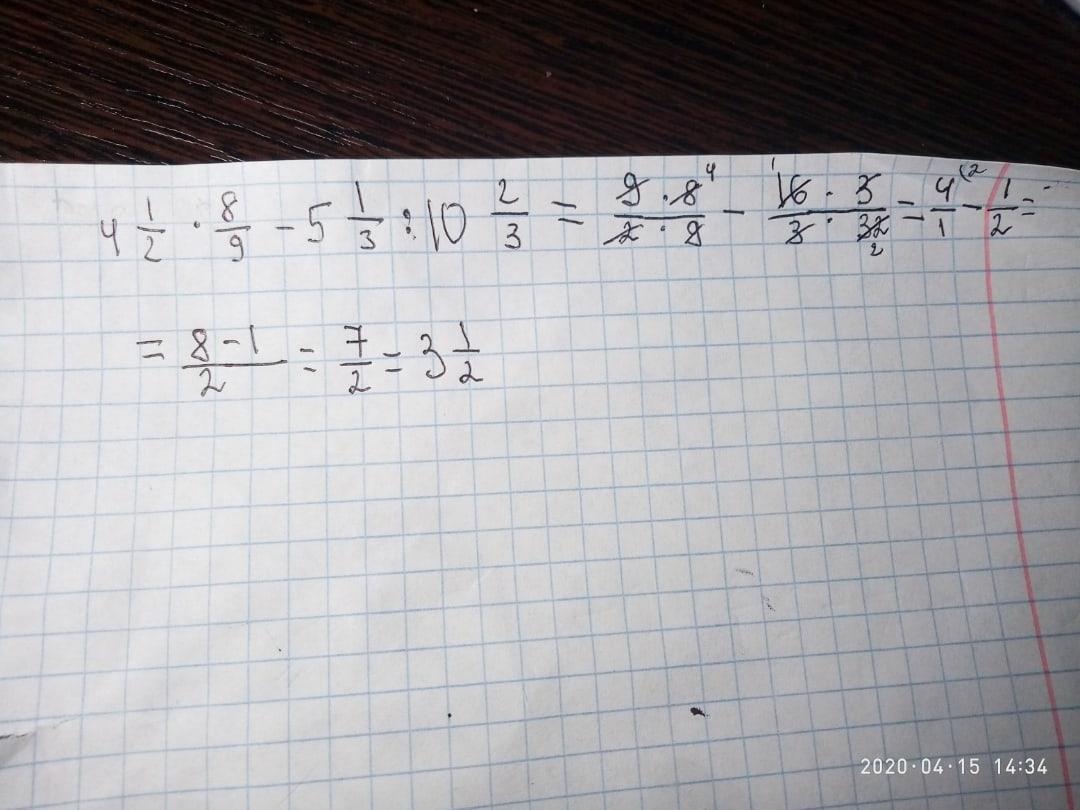 4 1/2 · 8/9 - 5 1/3 : 10 2/3 = 9·8⁴/2·9 - ¹16·3/3·32₂ = 4/1⁽² - 1/2 =
= 8-1/2 = 7/2 = 3 1/2
2020·04·15 14:34